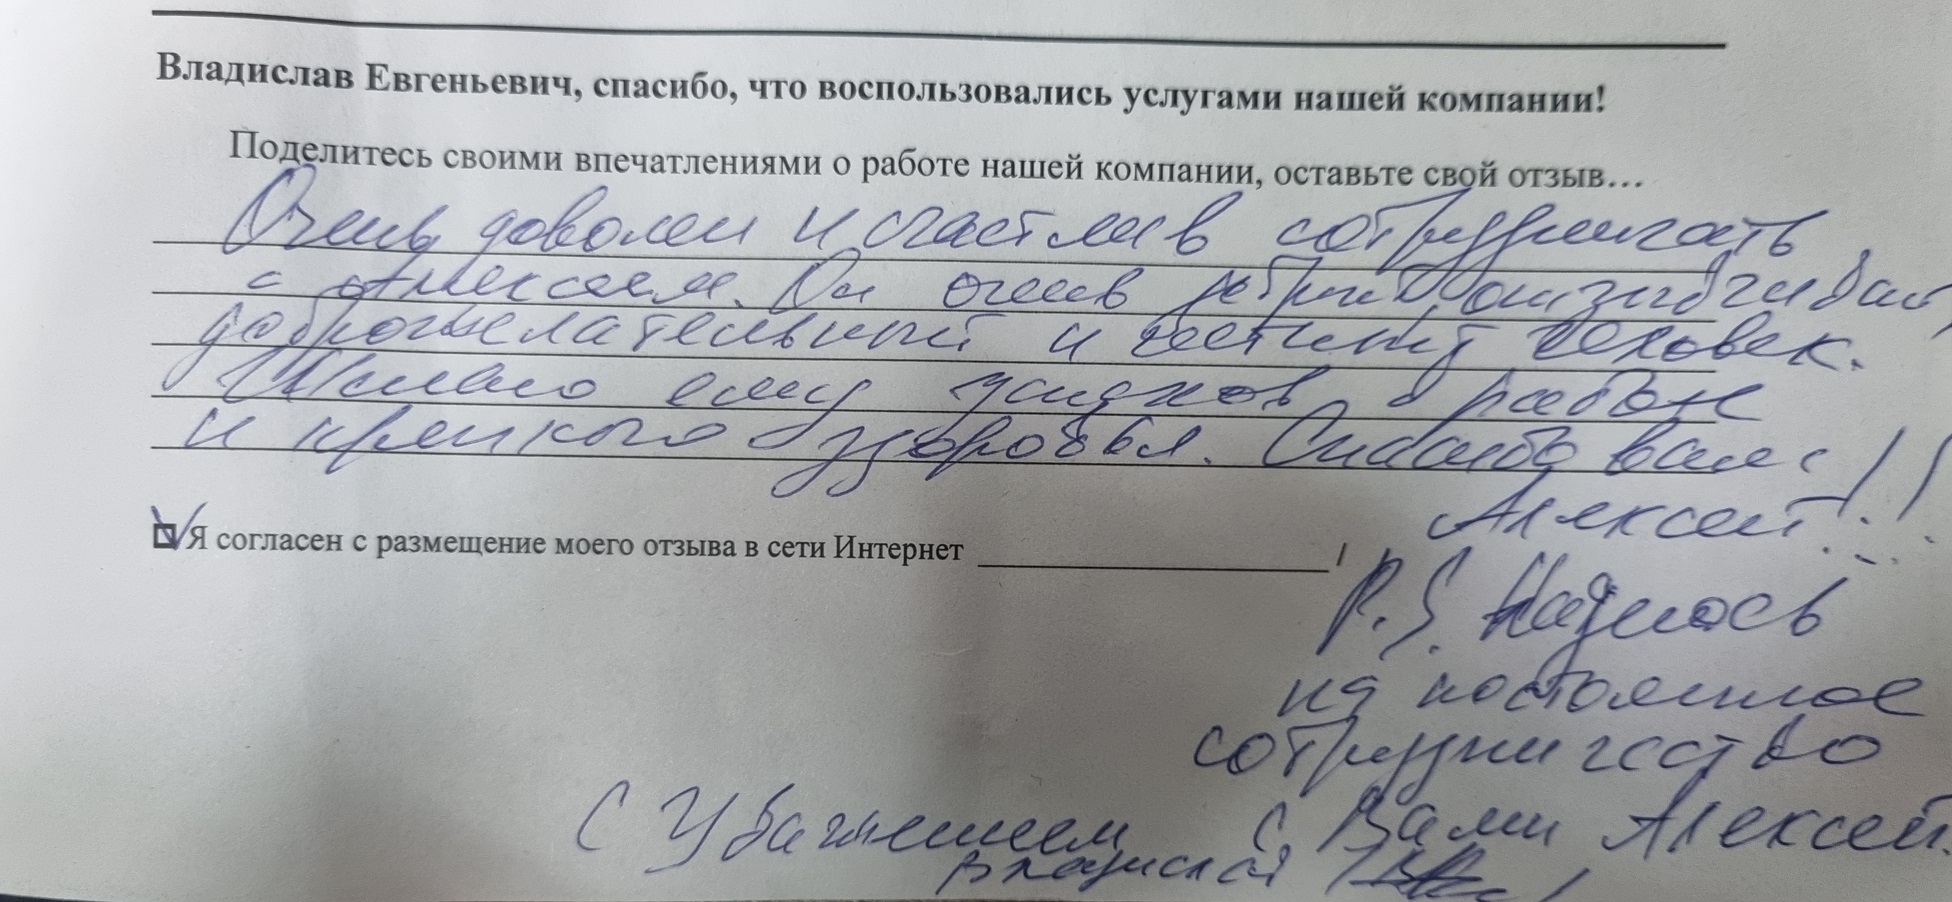 Владислав Евгеньевич, спасибо, что воспользовались услугами нашей компании!
Поделитесь своими впечатлениями о работе нашей компании, оставьте свой отзыв...
Очень доволен и счастлив сотрудничать
с Алексеем. Он очень
доброжелательный и честный человек.
Желаю ему успехов в работе
и крепкого здоровья. Спасибо вам
Алексей!!!
Я согласен с размещение моего отзыва в сети Интернет /
P.S. Надеюсь
на постоянное
сотрудничество
с Вами Алексей.
С Уважением
Владислав